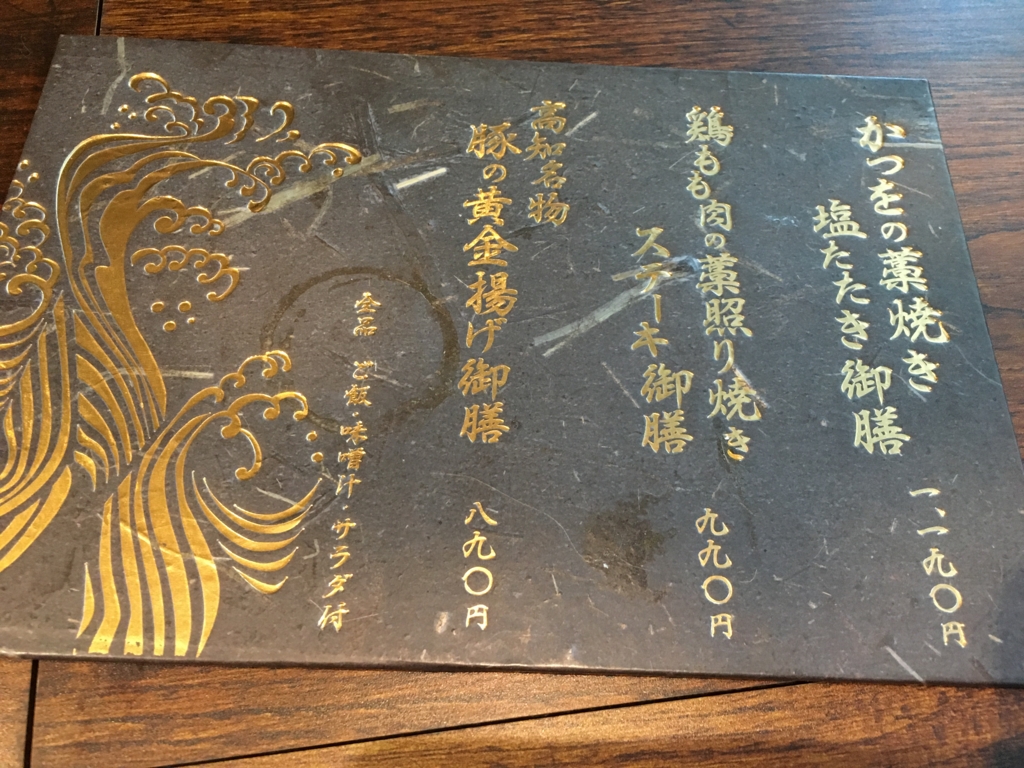 かつをの藁焼き
塩たたき御膳
一、一九〇円
鶏もも肉の藁照り焼き
ステーキ御膳
九九〇円
高知名物
豚の黄金揚げ御膳
八九〇円
全品 ご飯・味噌汁・サラダ付